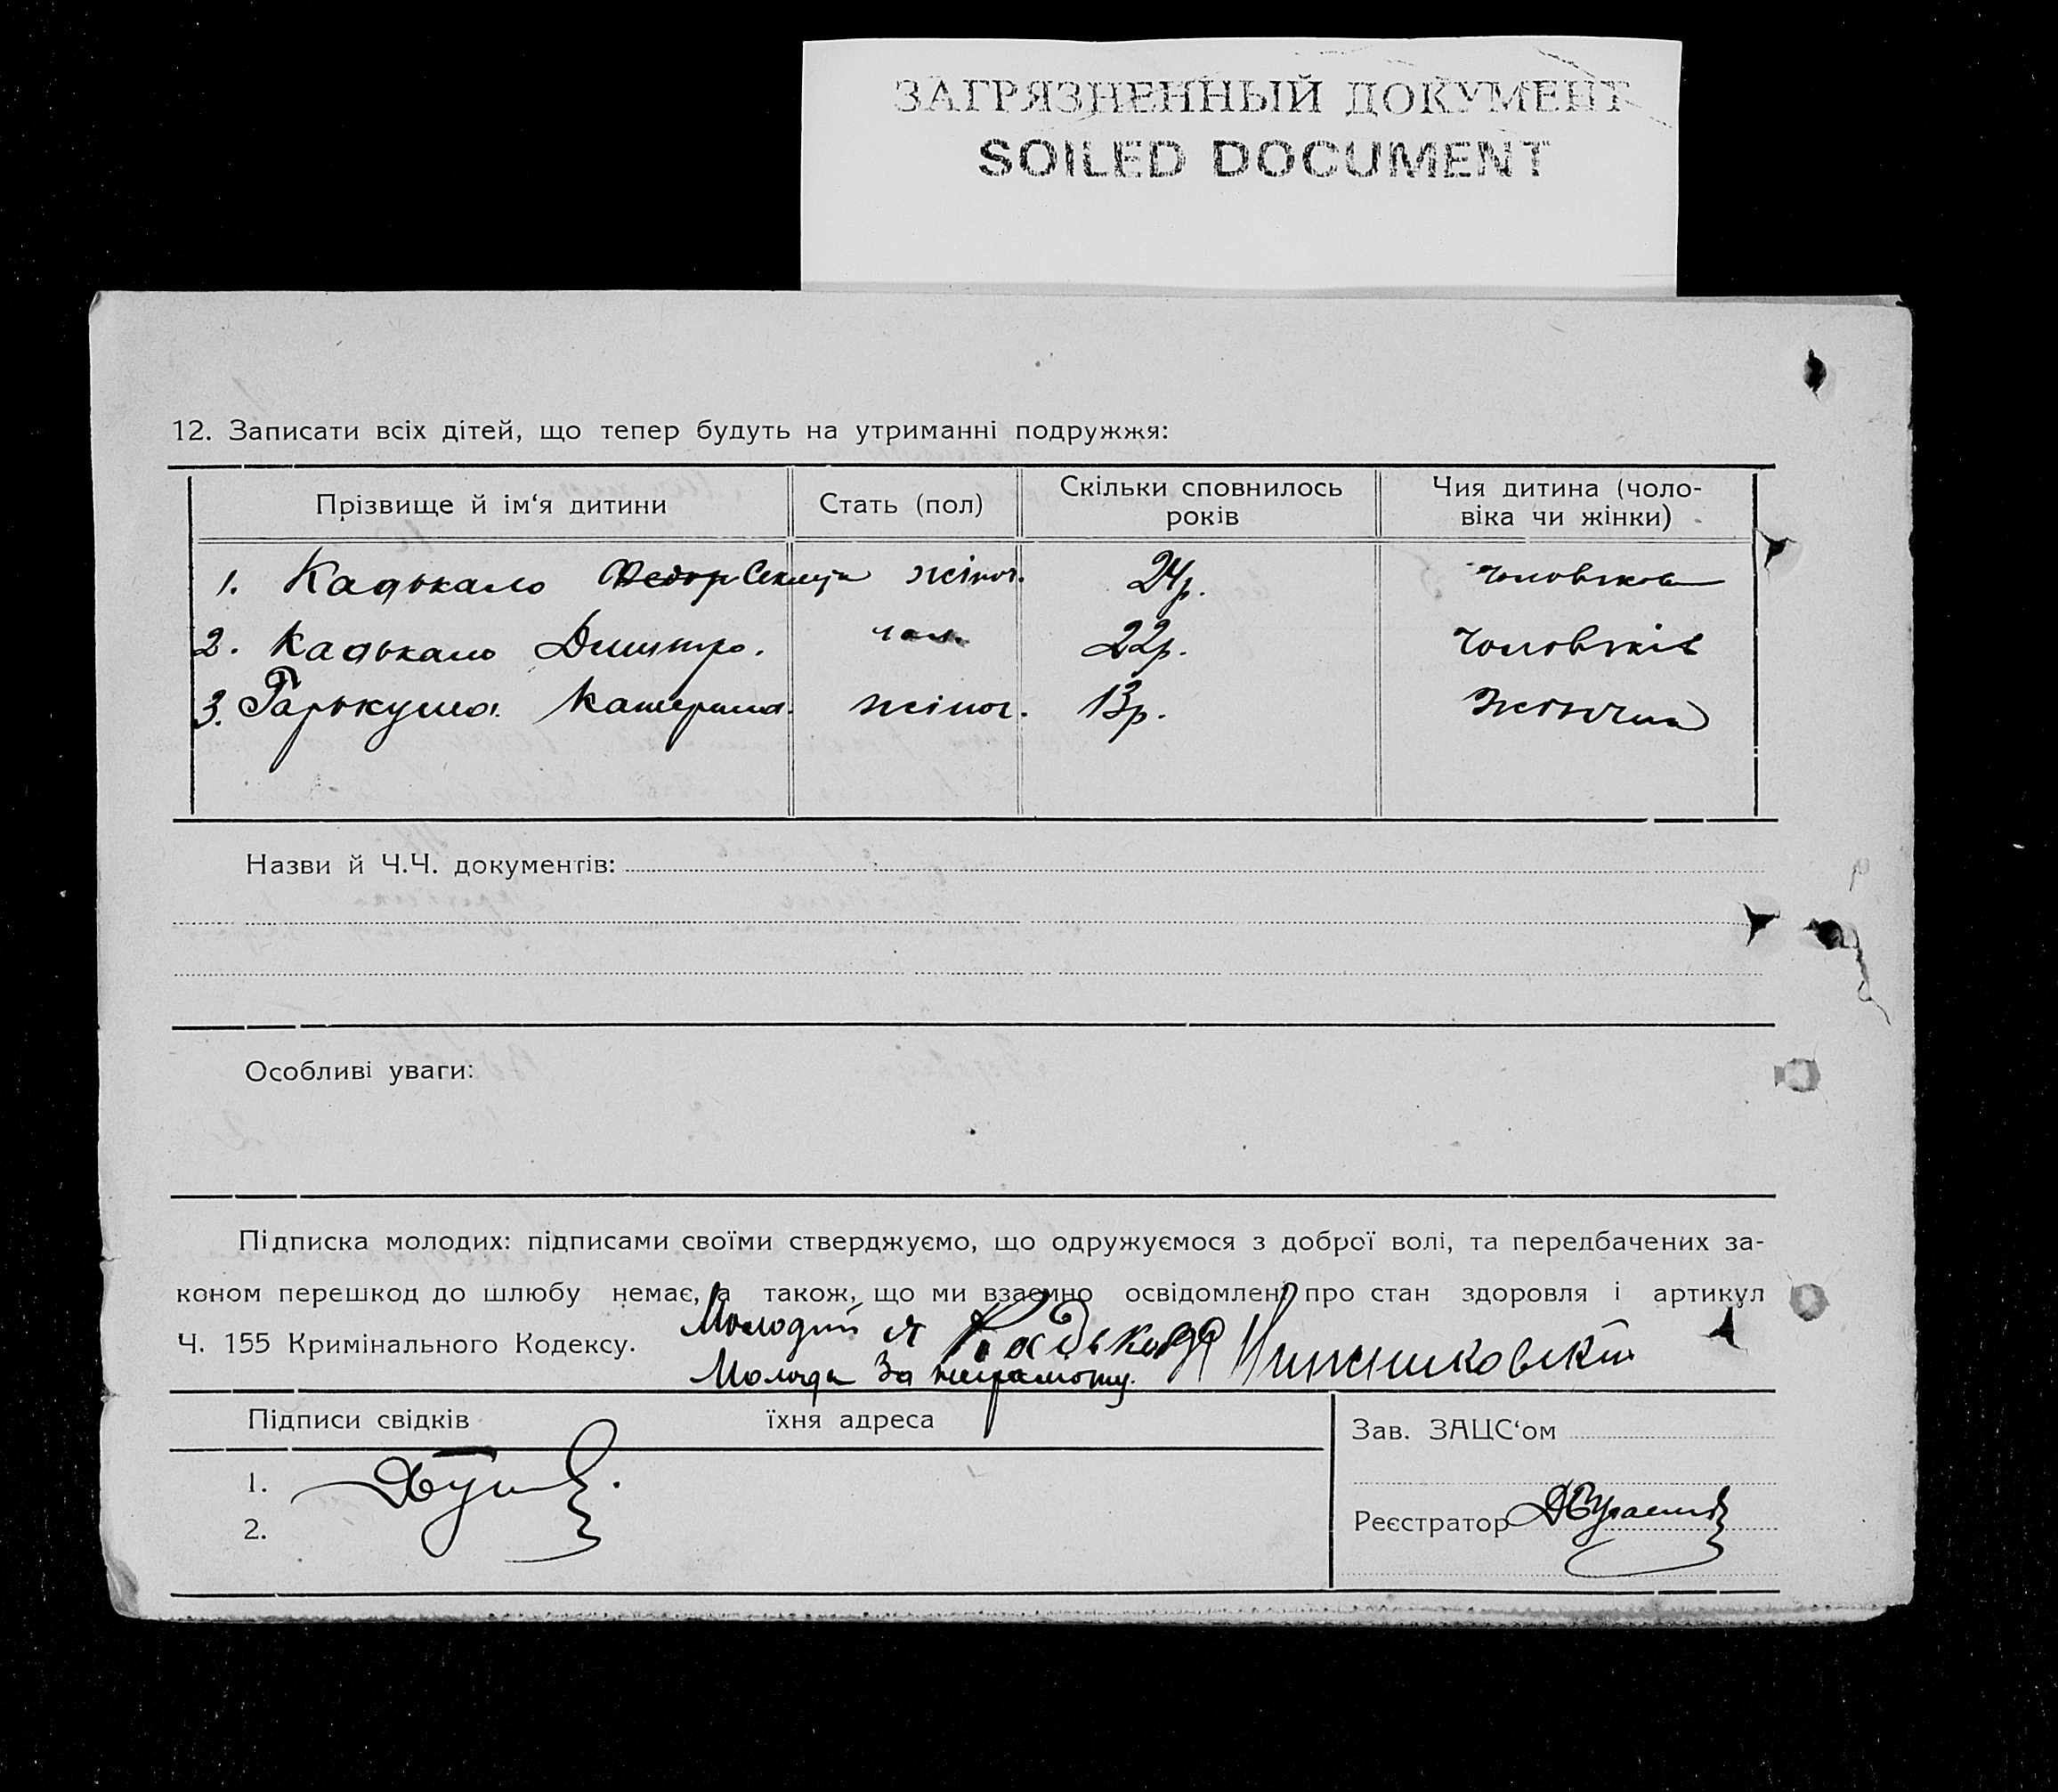 ЗАГРЯЗНЕННЫЙ ДОКУМЕНТ
SOILED DOCUMENT
12. Записати всіх дітей, що тепер будуть на утриманні подружжя:
Прізвище й ім‘я дитини Стать (пол) Скільки сповнилось років Чия дитина (чоло-віка чи жінки)
1. Кадькало Федор Секлета жіноч. 24р. чоловікова
2. Кадькало Дмитро. чол. 22р. чоловіків
3. Гарькуша Катерина. жіноч. 13р. Жіночина
Назви й Ч.Ч. документів:
Особливі уваги:
Підписка молодих: підписами своїми стверджуємо, що одружуємося з доброї волі, та передбачених за-
коном перешкод до шлюбу немає, а також, що ми взаємно освідомлені про стан здоровля і артикул
Ч. 155 Кримінального Кодексу. Молодий
Молода За неграмотну.
Підписи свідків їхня адреса
Зав. ЗАЦС‘ом
1.
2.
Реєстратор